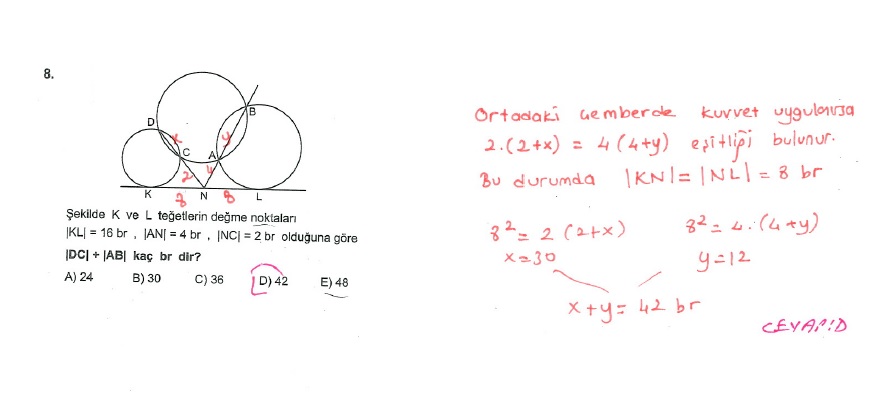 8.
D
B
x
y
C
A
2
4
K
8
N
8
L
Şekilde K ve L teğetlerin değme noktaları
|KL| = 16 br , |AN| = 4 br , |NC| = 2 br olduğuna göre
|DC| + |AB| kaç br dir?
A) 24 B) 30 C) 36 D) 42 E) 48
Ortadaki çemberde kuvvet uygulanırsa
2.(2+x) = 4(4+y) eşitliği bulunur.
Bu durumda |KN|=|NL|= 8 br
8² = 2 (2+x) 8² = 4.(4+y)
x=30 y=12
x+y= 42 br
CEVAP:D